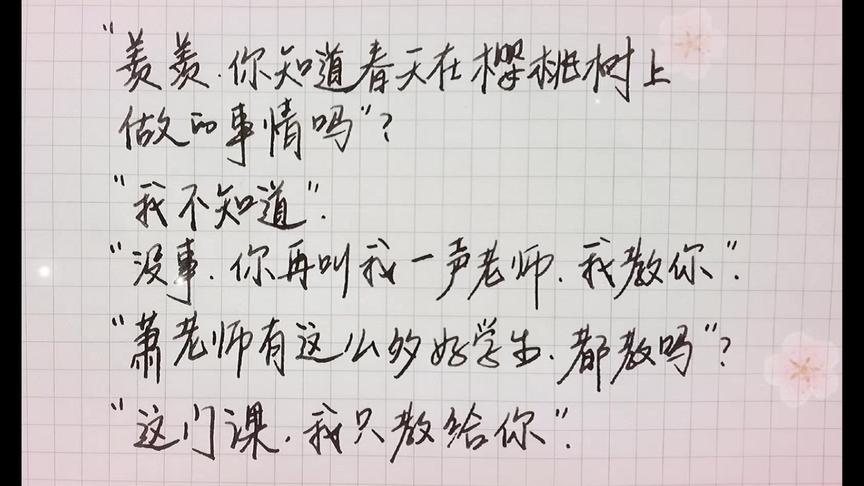 "羡羡.你知道春天在樱桃树上
做的事情吗"?
"我不知道".
"没事.你再叫我一声老师.我教你".
"萧老师有这么多好学生.都教吗"?
"这门课.我只教给你".